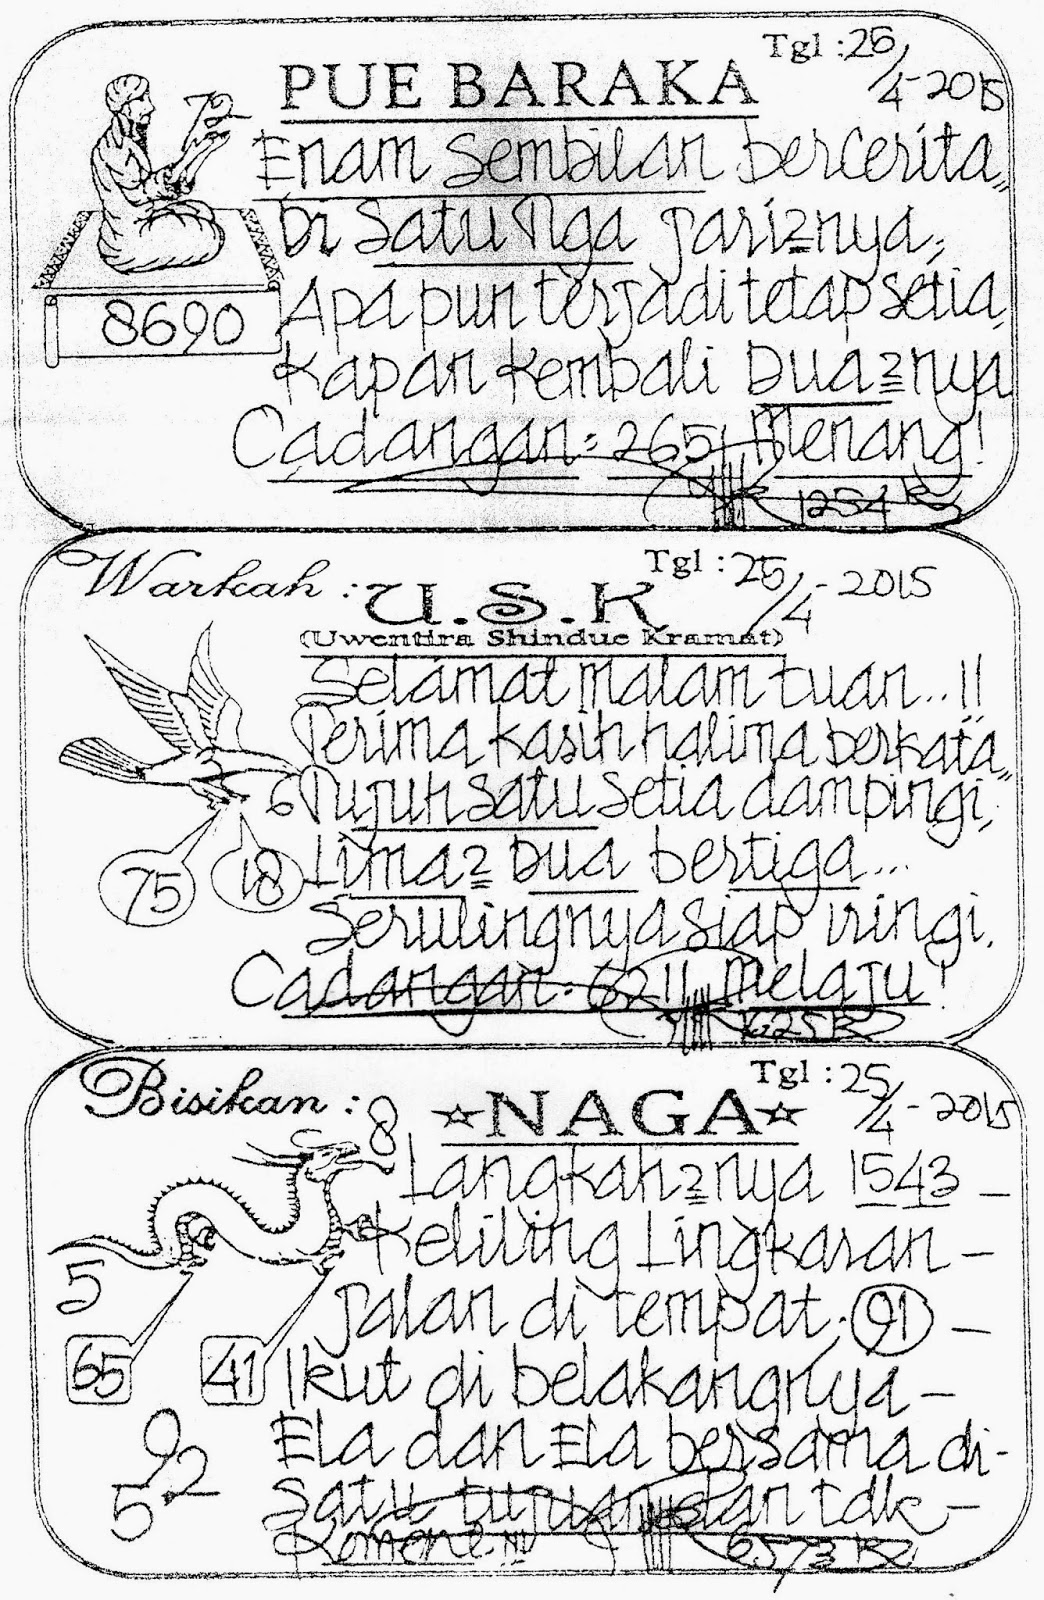 Tgl : 25/4-2015
PUE BARAKA
72
Enam Sembilan bercerita,,
Di Satu Tiga jari2nya,
8690
Apa pun terjadi tetap setia,
Kapan kembali Dua2nya
Cadangan = 2651 Menang!
1254
Warkah : U.S.K
Tgl : 25/4-2015
(Uwentira Shindue Kramat)
Selamat malam tuan..!!
Terima kasih halima berkata,,
6 Tujuh satu setia dampingi,
75 18
Lima2 Dua bertiga...
Serulingnya siap iringi.
Cadangan = 6211 Melaju!
Bisikan : NAGA
Tgl : 25/4-2015
8
Langkah2nya 1543 -
Keliling Lingkaran -
5
Jalan di tempat, 91 -
65 41
Ikut di belakangnya -
Ela dan Ela bersama di-
9
5 2
Satu tujuan dan tdk -
6573